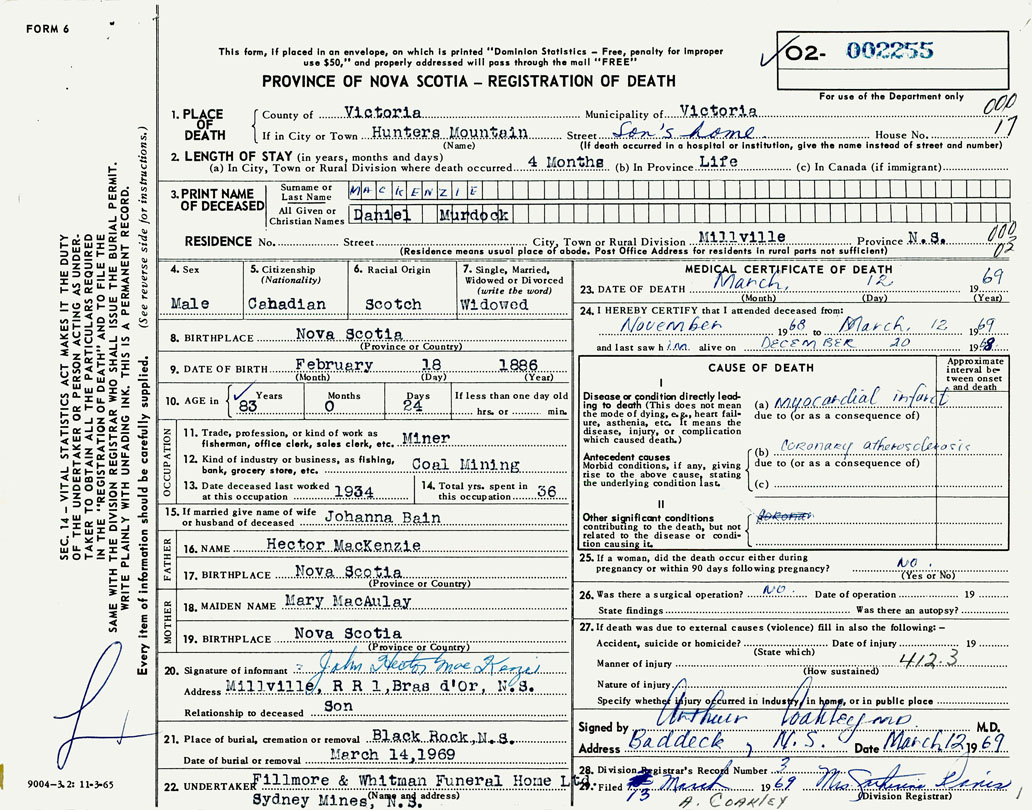 FORM 6
This form, if placed in an envelope, on which is printed "Dominion Statistics – Free, penalty for improper
use $50," and properly addressed will pass through the mail "FREE"
PROVINCE OF NOVA SCOTIA – REGISTRATION OF DEATH
02- 002255
For use of the Department only
000
17
1. PLACE OF DEATH
County of Victoria Municipality of Victoria
If in City or Town Hunters Mountain Street Son's home House No.
(Name) (If death occurred in a hospital or institution, give the name instead of street and number)
2. LENGTH OF STAY (in years, months and days)
(a) In City, Town or Rural Division where death occurred 4 Months (b) In Province Life (c) In Canada (if immigrant)
3. PRINT NAME OF DECEASED
Surname or Last Name MACKENZIE
All Given or Christian Names Daniel Murdock
RESIDENCE No. Street City, Town or Rural Division Millville Province N.S.
000
02
(Residence means usual place of abode. Post Office Address for residents in rural parts not sufficient)
4. Sex
Male
5. Citizenship
(Nationality)
Canadian
6. Racial Origin
Scotch
7. Single, Married,
Widowed or Divorced
(write the word)
Widowed
8. BIRTHPLACE Nova Scotia
(Province or Country)
9. DATE OF BIRTH February 18 1886
(Month) (Day) (Year)
10. AGE in Years Months Days If less than one day old
83 0 24 hrs. or min.
OCCUPATION
11. Trade, profession, or kind of work as
fisherman, office clerk, sales clerk, etc. Miner
12. Kind of industry or business, as fishing,
bank, grocery store, etc. Coal Mining
13. Date deceased last worked
at this occupation 1934
14. Total yrs. spent in
this occupation 36
15. If married give name of wife
or husband of deceased Johanna Bain
FATHER
16. NAME Hector MacKenzie
17. BIRTHPLACE Nova Scotia
(Province or Country)
MOTHER
18. MAIDEN NAME Mary MacAulay
19. BIRTHPLACE Nova Scotia
(Province or Country)
20. Signature of informant : John Hector MacKenzie
Address Millville, R R 1,Bras d'Or, N.S.
Relationship to deceased Son
21. Place of burial, cremation or removal Black Rock,N.S.
Date of burial or removal March 14,1969
22. UNDERTAKER Fillmore & Whitman Funeral Home Ltd.
(Name and address)
Sydney Mines, N.S.
MEDICAL CERTIFICATE OF DEATH
23. DATE OF DEATH March, 12 1969
(Month) (Day) (Year)
24. I HEREBY CERTIFY that I attended deceased from:
November 1968 to March, 12 1969
and last saw him alive on DECEMBER 20 1968.
CAUSE OF DEATH
Approximate
interval be-
tween onset
and death
I
Disease or condition directly lead-
ing to death (This does not mean
the mode of dying, e.g., heart fail-
ure, asthenia, etc. It means the
disease, injury, or complication
which caused death.)
(a) myocardial infarct
due to (or as a consequence of)
Antecedent causes
Morbid conditions, if any, giving
rise to the above cause, stating
the underlying condition last.
(b) coronary atherosclerosis
due to (or as a consequence of)
(c)
II
Other significant conditions
contributing to the death, but not
related to the disease or condi-
tion causing it.
25. If a woman, did the death occur either during
pregnancy or within 90 days following pregnancy? NO.
(Yes or No)
26. Was there a surgical operation? NO. Date of operation 19
State findings Was there an autopsy?
27. If death was due to external causes (violence) fill in also the following: –
Accident, suicide or homicide? Date of injury 19
(State which)
Manner of injury 412.3
(How sustained)
Nature of injury
Specify whether injury occurred in industry, in home, or in public place
Signed by Arthur Coakley MD M.D.
Address Baddeck, N.S. Date March, 12 1969
28. Division Registrar's Record Number 3
29. Filed 13 March 1969 Mrs
(Division Registrar)
A. COAKLEY
SEC. 14 – VITAL STATISTICS ACT MAKES IT THE DUTY
OF THE UNDERTAKER OR PERSON ACTING AS UNDER-
TAKER TO OBTAIN ALL THE PARTICULARS REQUIRED
IN THE "REGISTRATION OF DEATH" AND TO FILE THE
SAME WITH THE DIVISION REGISTRAR WHO SHALL ISSUE THE BURIAL PERMIT.
WRITE PLAINLY WITH UNFADING INK. THIS IS A PERMANENT RECORD.
Every item of information should be carefully supplied. (See reverse side for instructions.)
9004-3.2: 11-3-65